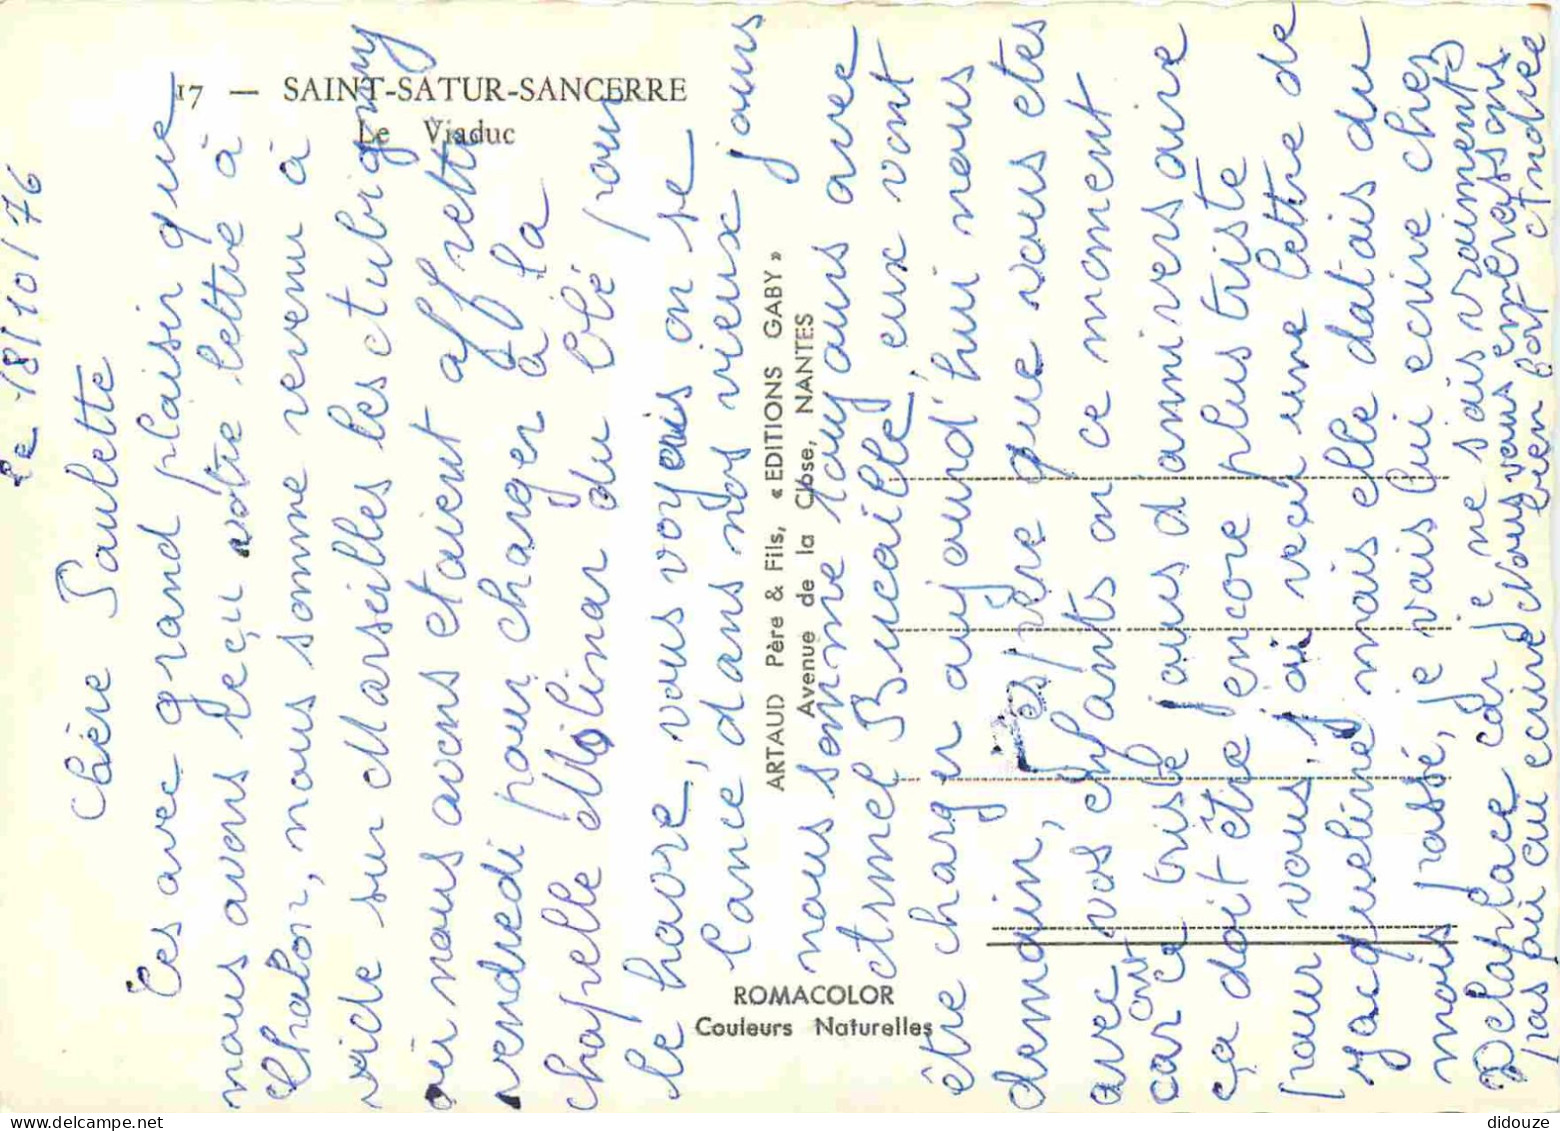 17 — SAINT-SATUR-SANCERRE
Le Viaduc
ARTAUD Père & Fils, « EDITIONS GABY »
Avenue de la Close, NANTES
ROMACOLOR
Couleurs Naturelles
Le 18/10/76
Chère Paulette
Ces avec grand plaisir que
nous avons reçu votre lettre à
Chalon, nous somme revenu à
vide sur Marseilles les Aubigny
où nous avons etaient affrette
vendredi pour charger à la
chapelle Molinar du blé pour
le havre, vous voyeris on se
lance dans nos vieux jours
nous somme tous jours avec
Armel Bucaille, eux vont
être charger aujourd'hui nous
demain, J'espère que vous etes
avec vos enfants en ce moment
car ce triste jours d anniversaire
ça doit être encore plus triste
pour vous, j'ai reçu une lettre de
Jacqueline mais elle datais du
mois passé, je vais lui ecrire chez
Delaplace car je ne sais vraiments
pas où ecrire Nous vous embrassons
bien fort Andrée
didouze